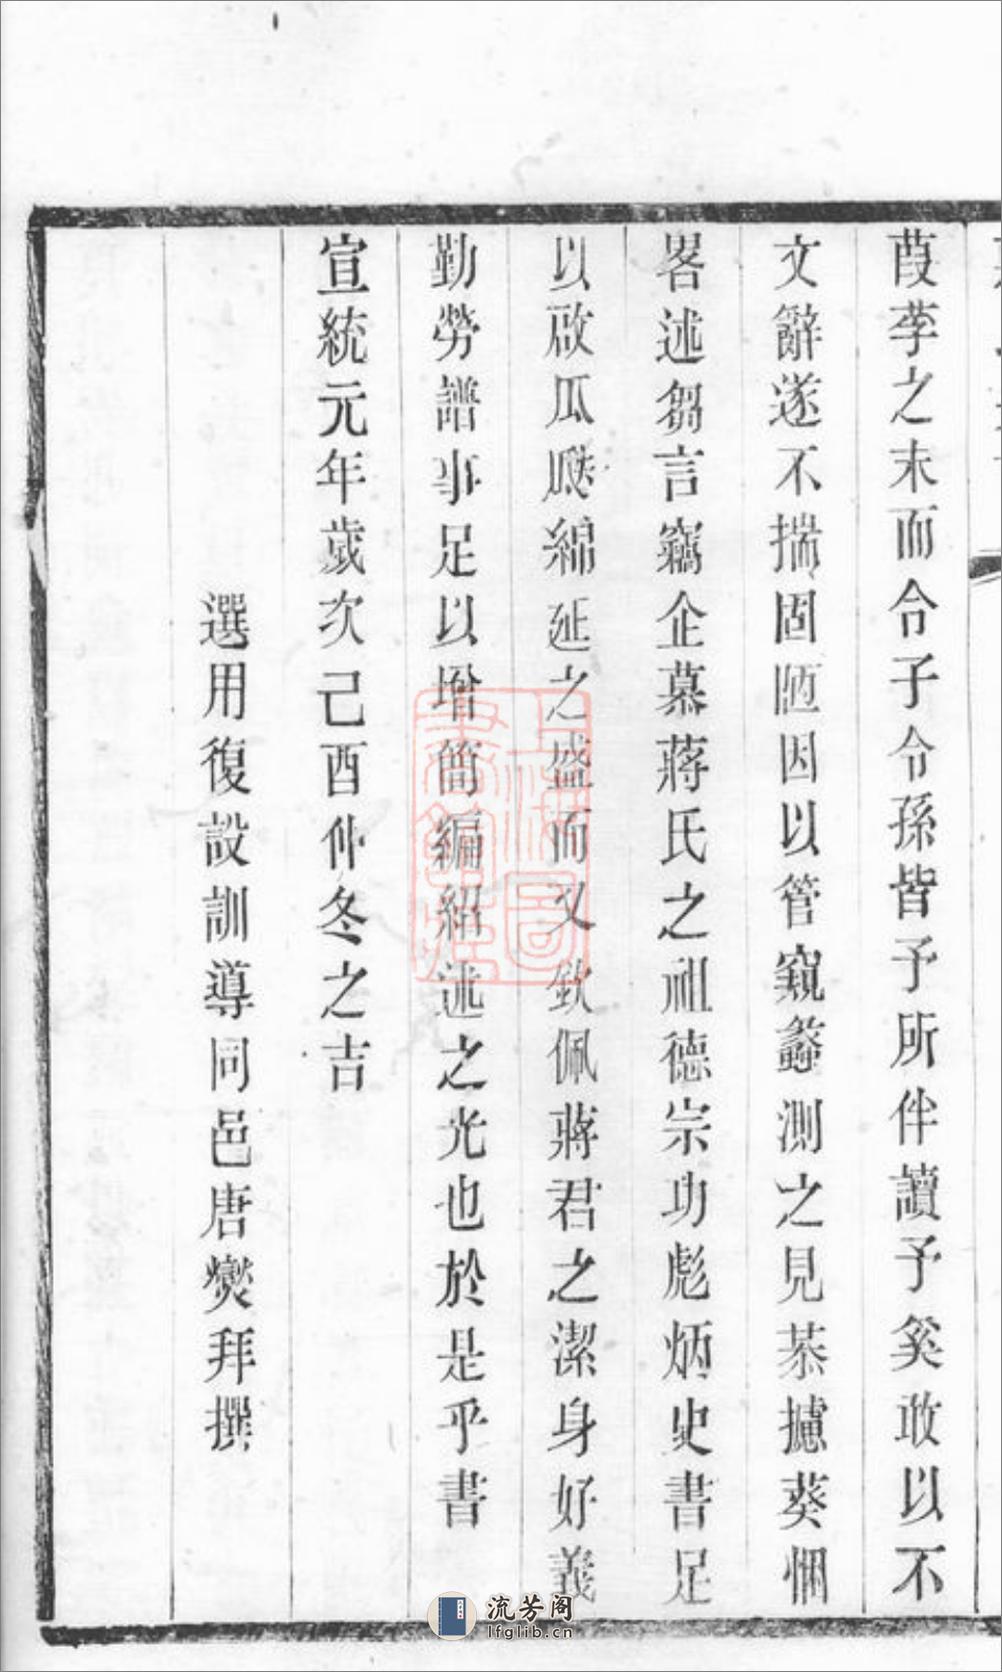 葭莩之末而令子令孫皆予所伴讀予奚敢以不
文辭遂不揣固陋因以管窺蠡測之見恭攄葵悃
畧述芻言竊企慕蔣氏之祖德宗功彪炳史書足
以啟瓜瓞綿延之盛而又欽佩蔣君之潔身好義
勤勞譜事足以增簡編紹述之光也於是乎書
宣統元年歲次己酉仲冬之吉
選用復設訓導同邑唐爕拜撰
上海圖書館藏
流芳阁
lfglib.cn